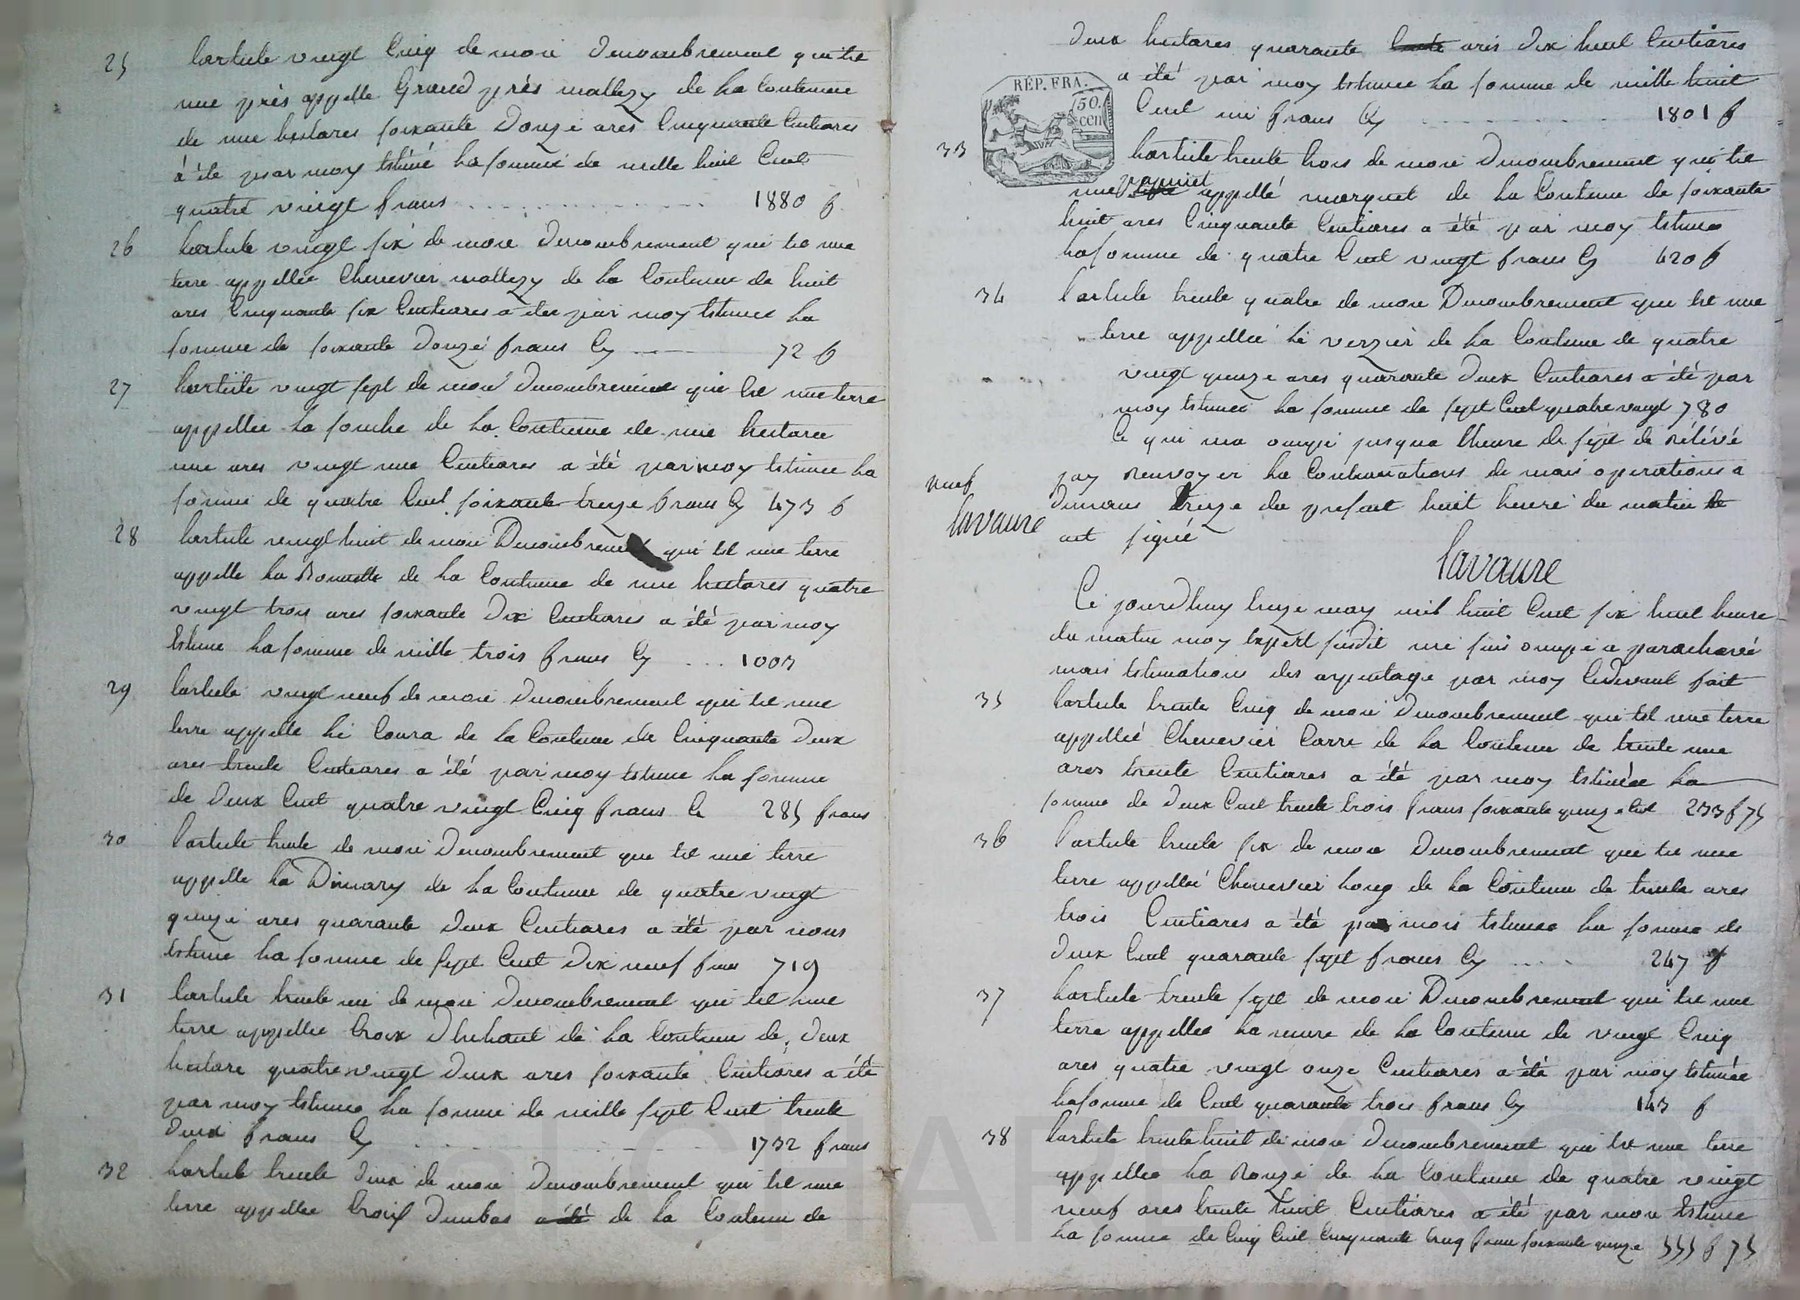 25 Larticle vingt Cinq de mon Denombrement qui Est
une près appelle Grand près mallezy de La Contenue
de une hectares soixante Douze ares Cinquante Centiares
à été par moy Estimé La somme de mille huit Cent
quatre vingt frans . . . . . . . . . . . . . 1880 f
26 Larticle vingt six de mon Denombrement qui Est une
terre appellée Chenevier mallezy de La Contenue de huit
ares Cinquante six Centiares a été par moy Estimée La
somme de soixante Douze frans Cy ---- 72 f
27 Larticle vingt sept de mon Denombrement qui Est une terre
appellée La souche de La Contenue de une hectare
une ares vingt une Centiares a été par moy Estimée La
somme de quatre Cent soixante treize frans Cy 473 f
28 Larticle vingt huit de mon Denombrement qui Est une terre
appelle La Bonnette de La Contenue de une hectares quatre
vingt trois ares soixante Dix Centiares a été par moy
Estime La somme de mille trois frans Cy . . . 1003
29 Larticle vingt neuf de mon Denombrement qui Est une
terre appelle Le Coura de La Contenue de Cinquante Deux
ares trente Centiares a été par moy Estime La somme
de Deux Cent quatre vingt Cinq frans Cy 285 frans
30 Larticle trente de mon Denombrement que Est une terre
appelle La Dimary de La Contenue de quatre vingt
quinze ares quarante Deux Centiares a été par nous
Estime La somme de sept Cent Dix neuf frans 719
31 Larticle trente un de mon Denombrement qui Est une
terre appellée Croix Dhehaut de La Contenue de Deux
hectare quatre vingt Deux ares soixante Centiares a été
par moy Estimee La somme de mille sept Cent trente
Deux frans Cy . . . . . . . . . 1732 frans
32 Larticle trente Deux de mon Denombrement qui Est une
terre appellee Croix Dumbas a été de La Contenue de
Deux hectares quarante ares Dix huit Centiares
a été par moy Estimee La somme de mille huit
Cent un frans Cy . . . . . . . . . . 1801 f
RÉP. FRA.
50.
CEN
33 Larticle trente trois de mon Denombrement qui Est
une appellé marquet de La Contenue de soixante
huit ares Cinquante Centiares a été par moy Estimee
La somme de quatre Cent vingt frans Cy 420 f
34 Larticle trente quatre de mon Denombrement que Est une
terre appellée Le verzier de La Contenue de quatre
vingt quinze ares quarante Deux Centiares a été par
moy Estimee La somme de sept Cent quatre vingt 780
Ce qui ma ocupé jusqua Lheure de sept de Rélévé
neuf
jay Renvoyer La Continuations de mais operations a
Dimans treize du presant huit heure du matin
Lavaure
ait signé
Lavaure
Ce jourdhuy treize may mil huit Cent six huit heure
du matin moy Expert susdit me suis ocupé a parachevé
mais Estimations des arpentage par moy Cidevant fait
35 Larticle trente Cinq de mon Denombrement qui Est une terre
appellée Chenevier Carre de La Contenue de trente une
ares trente Centiares a été par moy Estimée La
somme de Deux Cent trente trois frans soixante quinze Cent 233 f 75
36 Larticle trente six de mon Denombrement que Est une
terre appellée Chenevier Long de La Contenue de trente ares
trois Centiares a été par mois Estimee La somme de
Deux Cent quarante sept frans Cy . . . . 247 f
37 Larticle trente sept de mon Denombrement qui Est une
terre appellée La meure de La Contenue de vingt Cinq
ares quatre vingt onze Centiares a été par moy Estimée
La somme de Cent quarante trois frans Cy 143 f
38 Larticle trente huit de mon Denombrement qui Est une terre
appellée La Ronze de La Contenue de quatre vingt
neuf ares trente huit Centiares a été par moi Estimee
La somme de Cinq Cent Cinquante Cinq frans soixante quinze 555 f 75